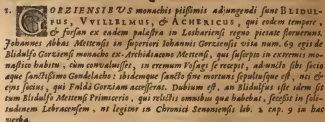 1. GORZIENSIBUS monachis piissimis adjungendi sunt BLIDUL-
FUS, VVILLELMUS, & ACHERICUS, qui eodem tempore,
& forsan ex eadem palæstra in Lothariensi regno pietate floruerunt.
Johannes Abbas Mettensis in superiori Iohannis Gorziensis vita num. 69 egit de
Blidulfo Gorziensi monacho ex-Archidiacono Metensi, qui suscepto in extremis mo-
nastico habitu, cum convaluisset, in eremum Vosagi se recepit, adjuncto sibi socio
æque sanctissimo Gundelacho: ibidemque sancto fine mortuus sepultusque est, nisi &
ejus socius, qui Fuldâ Gorziam accesserat. Dubium est, an Blidulfus iste idem sit
cum Blidulfo Mettensi Primicerio, qui relictis omnibus quæ habebat, secessit in soli-
tudinem Lebracensem, ut legitur in Chronico Senoniensi lib. 2 cap. 9 in hæc
verba.